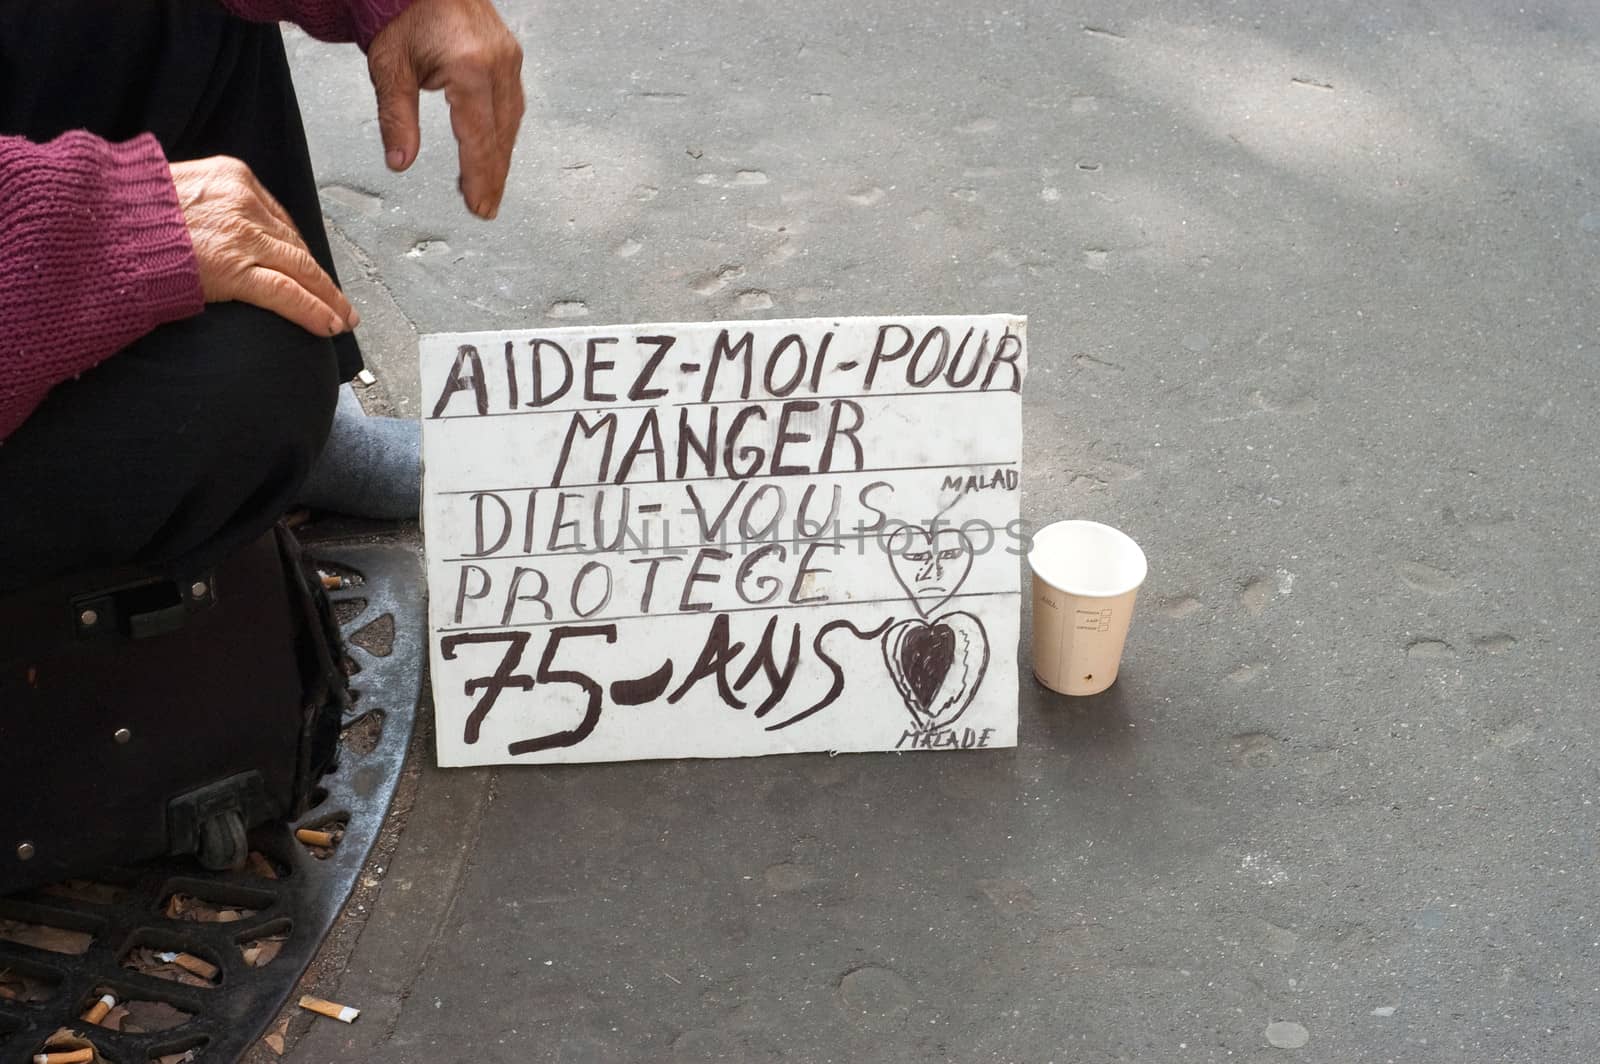 AIDEZ-MOI-POUR
MANGER
MALAD
DIEU-VOUS
PROTEGE
75-ANS
MALADE
UNLIMPHOTOS